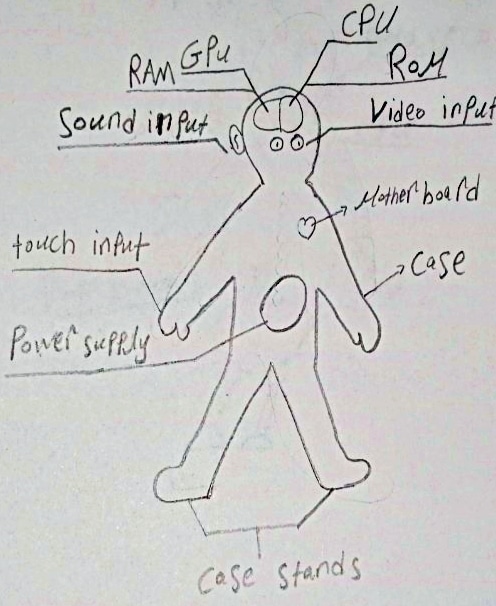 CPU
GPU
RAM
ROM
Sound input
Video input
Motherboard
touch input
Case
Power supply
Case stands